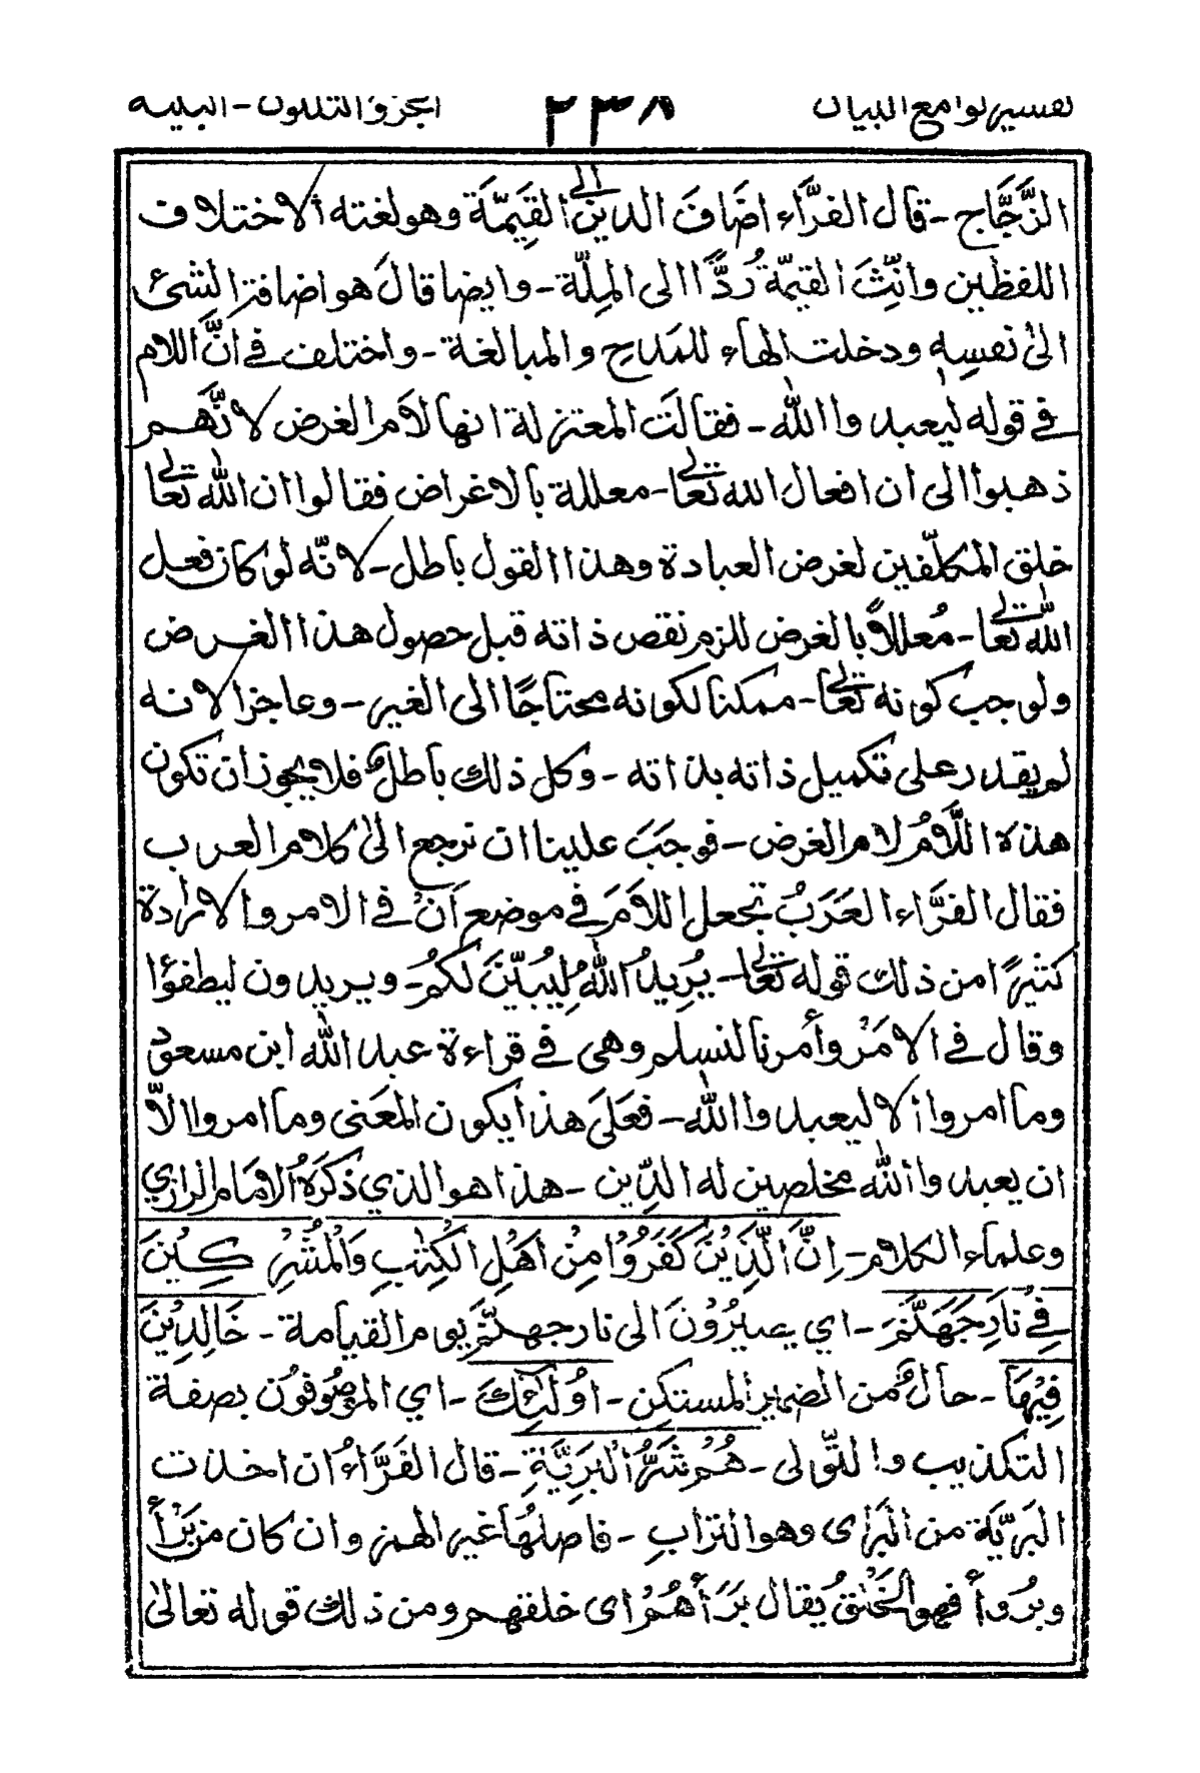 تفسير لوامع البيان ٢٣٨ الجزؤ الثلثون - البينة
الزَّجَّاج - قال الفرَّاء اضَافَ الدين الى القَيِّمَّة وهو لغته الاختلاف
اللفظين وانّثَ القيمّة رُدًّا الى المِلّة - وايضا قالَ هو اضافة الشئ
الىٰ نفسِهٖ ودخلت الهاء للمَدح والمبالغة - واختلف في انَّ اللام
في قوله ليعبدوا الله - فقالَت المعتزلة انها لاَم الغرض لانَّهم
ذهبوا الى ان افعال الله تعالى - معللة بالاغراض فقالوا ان الله تعالى
خلق المكلّفين لغرض العبادة وهذا القول باطل - لانّه لو كان فعل
الله تعالى - مُعللاً بالغرض للزم نقص ذاته قبل حصول هذا الغرض
ولوجب كونه تعالى - ممكنا لكونه محتاجًا الى الغير - وعاجزا لانه
لم يقدر على تكميل ذاته بذاته - وكل ذلك باطلٌ فلا يجوز ان تكون
هذه اللَّامُ لام الغرض - فوجَبَ علينا ان نرجع الىٰ كلام العرب
فقال الفَرَّاء العَرَبُ تجعل اللاَمَ في موضع اَنْ في الامر والارادة
كثيرًا من ذلك قوله تعالى - يُرِيدُ اللهُ لِيُبَيِّنَ لَكُمْ - ويريدون ليطفؤا
وقال في الامَرْ وأمرنا لنسلم وهى في قراءة عبد الله ابن مسعود
وما امروا الا ليعبدوا الله - فعَلىَ هذا يكون المعَنى وما امروا الاّ
ان يعبدوا الله مخلصين له الدِّين - هذا هو الذي ذكَرَهُ الامَام الرازي
وعلماء الكلام - اِنَّ الَّذِيْنَ كَفَرُوْا مِنْ اَهْلِ الْكِتٰبِ وَالْمُشْرِكِيْنَ
فِيْ نَارِ جَهَنَّمَ - اي يصيرُوْنَ الى نار جهنّم يوم القيامة - خَالِدِيْنَ
فِيْهَا - حالٌ من الضمير المستكن - اُولٰئِكَ - اي الموصُوفوُن بصفة
التكذيب والتّولى - هُمْ شَرُّ الْبَرِيَّةِ - قال الفَرَّاءُ ان اخذت
البَرِيَّة من البَرٰى وهو التراب - فاصلهَا غير الهمز وان كان من بَرَأَ
وبُروأ فهو الخَلْقُ يُقال بَرَأَهُمْ اى خلقهم ومن ذلك قوله تعالىٰ